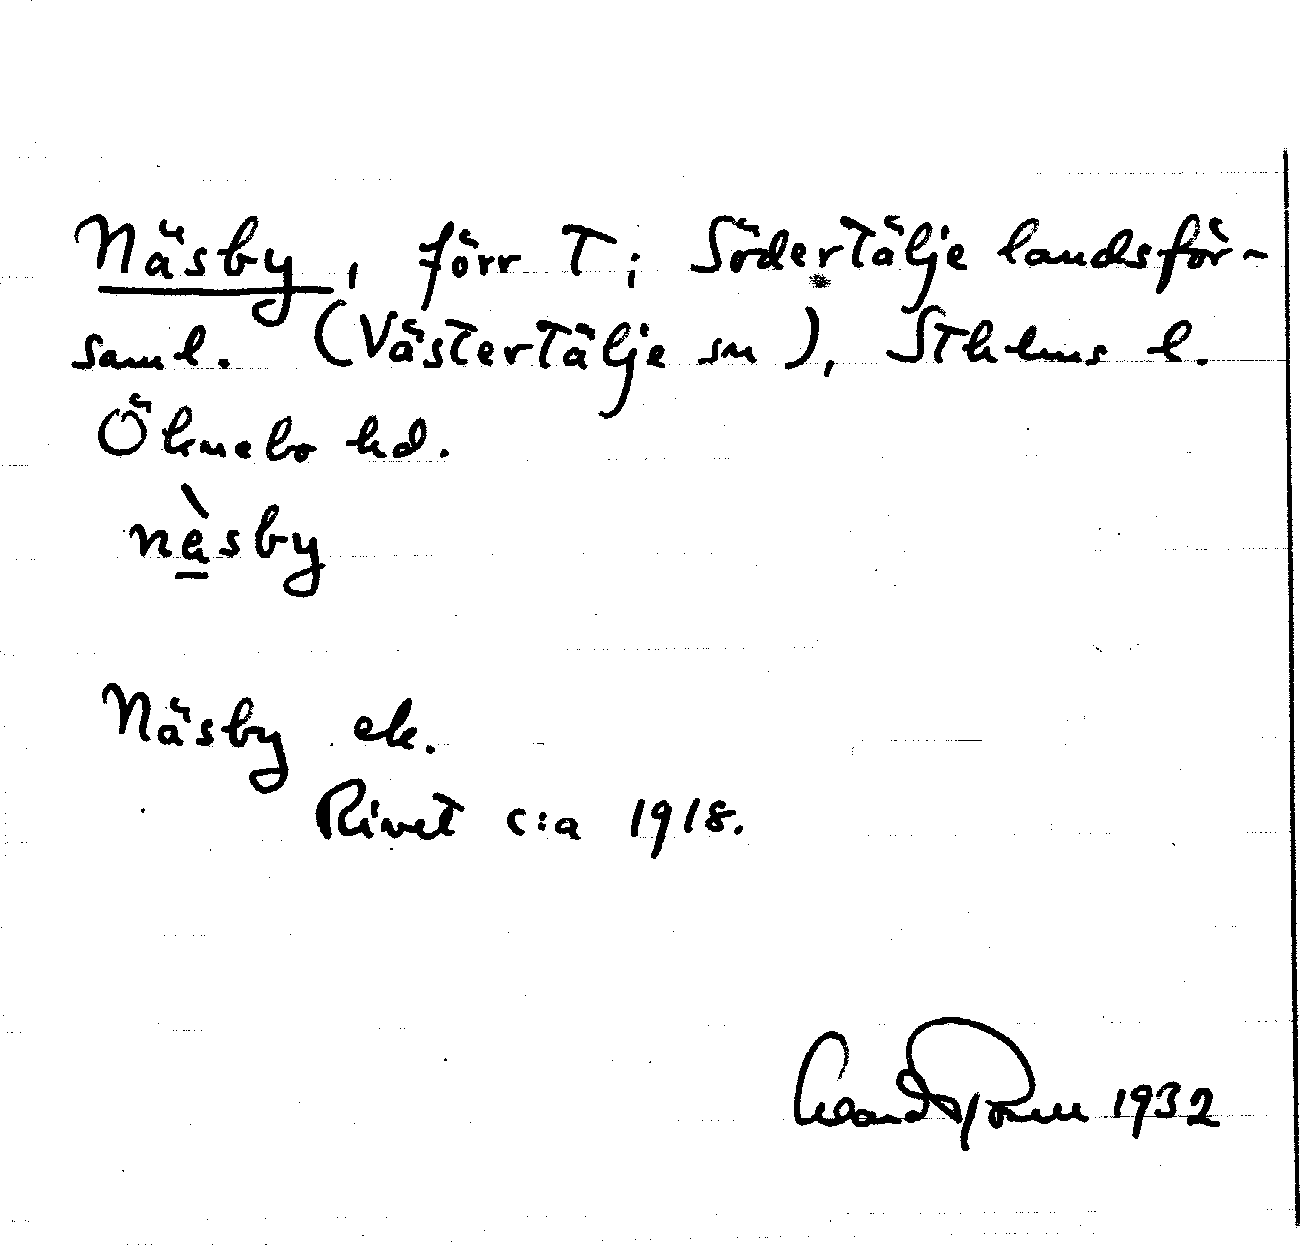 Näsby, förr T; Södertälje landsför-
saml. (Västertälje sn), Sthlms l.
Öknebo hd.
nä̀sby
Näsby ek.
Rivet c:a 1918.
1932